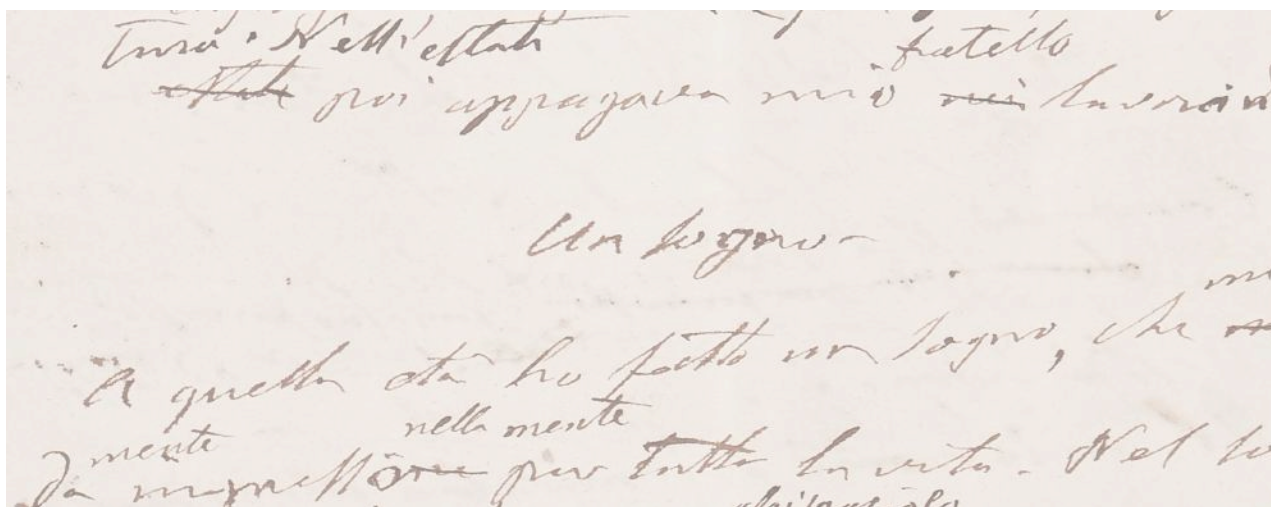 tura. Nell'estate
fratello
poi appagava mio
Un sogno -
A quella età ho fatto un sogno, che
mente nella mente
per tutta la vita. Nel